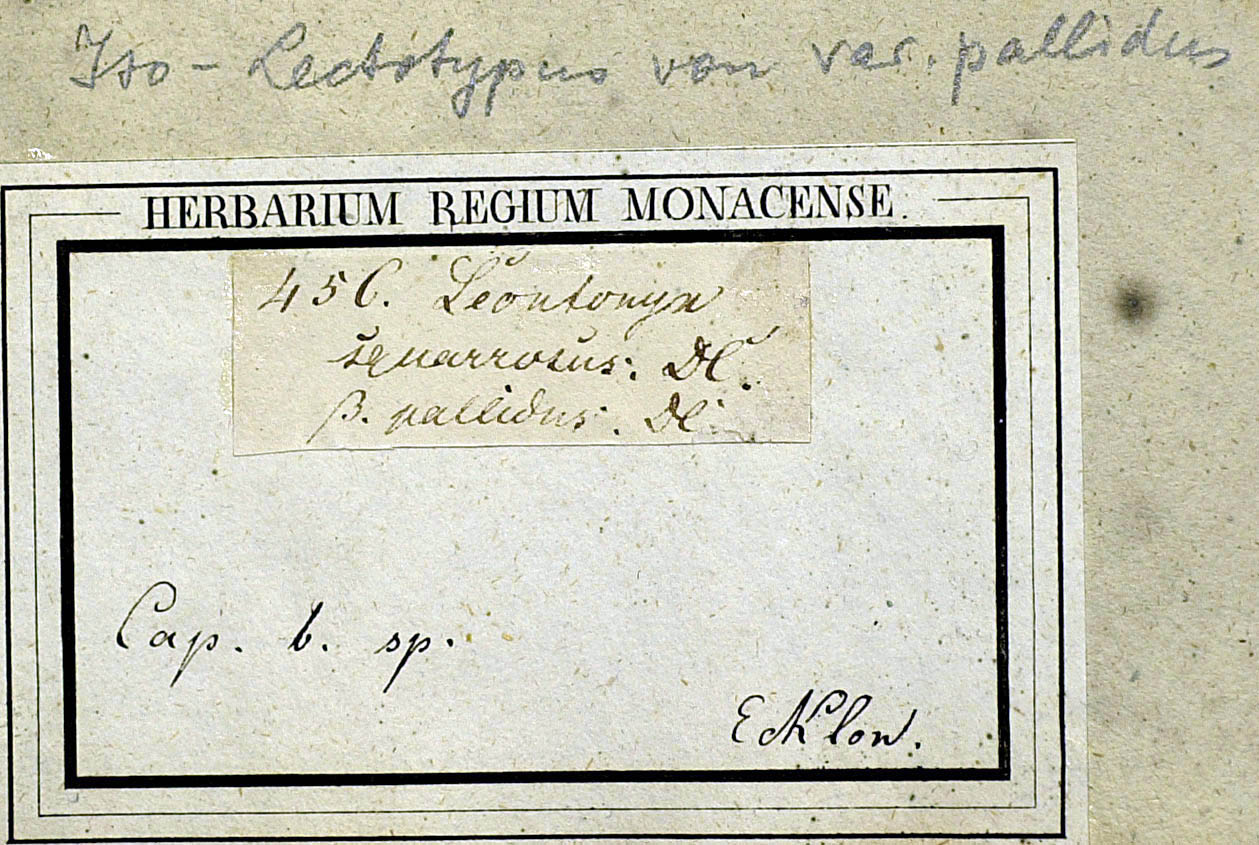 Iso-Lectotypus von var. pallidus
HERBARIUM REGIUM MONACENSE.
456. Leontonyx
squarrosus. DC.
β. pallidus. DC.
Cap. b. sp.
Ecklon.